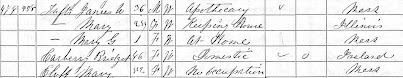 Taft James A 36 M W Apothecary Mass
— Mary 25 F W Keeping House Illinois
— Mary G 1 F W At Home Mass
Carberry Bridget 46 F W Domestic Ireland
Mary F W No occupation Mass